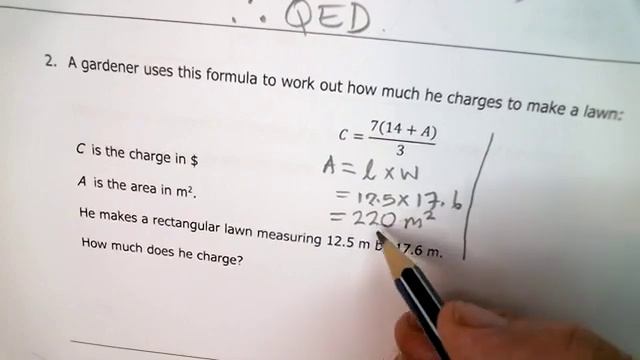 ∴ QED.
2. A gardener uses this formula to work out how much he charges to make a lawn:
C = 7(14 + A) / 3
C is the charge in $
A = l x w
A is the area in m².
= 12.5 x 17.6
= 220 m²
He makes a rectangular lawn measuring 12.5 m b 17.6 m.
How much does he charge?